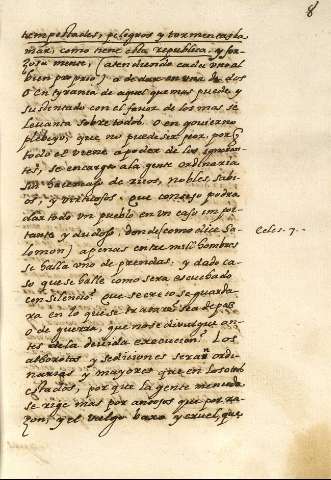 8
tempestades, peligros y tormentas la
mar, como tiene esta republica, y for-
zosa mente, (atendiendo cada uno al
bien proprio) a de dar en una de dos
O en tyrania de aquel que mas puede y
sustentado con el favor de los mas se
levanta sobre todos. O en govierno
plebeyo, que no puede ser peor, porq
todo el viene a poder de los ignoran
tes, se encarga a la gente ordinaria
sin hazer caso de ricos, nobles, sabi
os, y virtuosos. que consejo podra
dar todo un pueblo en un caso im por-
tante y dudoso, donde (como dice Sa-
lomon) apenas entre mill hombres
se halla uno de prendas, y dado ca-
so que se halle como sera escuchado
con silencio? que secreto se guarda-
ra en lo que se tratare sea de paz
O de guerra, que no se divulgue an-
tes de la devida execucion? Los
alborotos y sediciones seran orde-
narias y mayores que en los otros
estados, por que la gente menuda
se rige mas por antojos que por ra-
zon, y el vulgo baxo y cruel, que
Celes. 7.